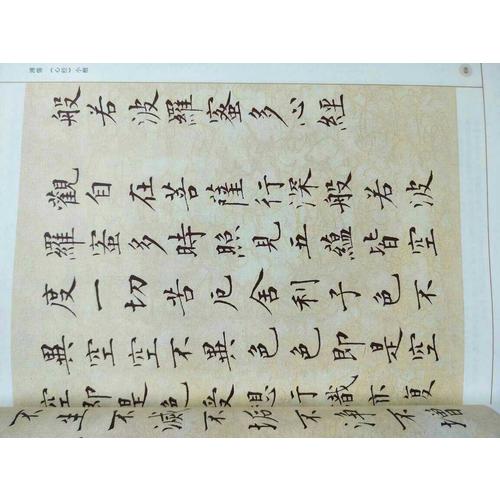 《心经》小楷
般若波羅蜜多心經
觀自在菩薩行深般若波
羅蜜多時照見五蘊皆空
度一切苦厄舍利子色不
異空空不異色色即是空
空即是色受想行識亦復
不生不滅不垢不淨不增